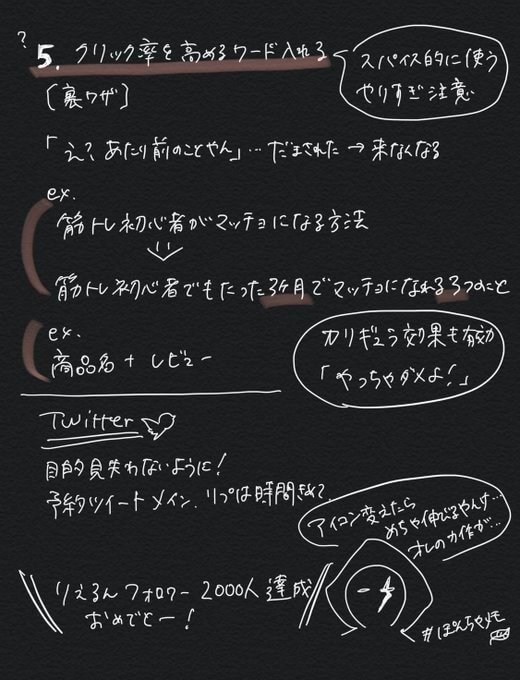 ?
5. クリック率を高めるワード入れる
スパイス的に使う
やりすぎ注意
[裏ワザ]
「え?あたり前のことやん」…だまされた→来なくなる
ex.
筋トレ初心者がマッチョになる方法
筋トレ初心者でもたった3ヶ月でマッチョになれる3つのこと
ex.
商品名+レビュー
カリギュラ効果も有効
「やっちゃダメよ!」
Twitter
目的見失わないように!
予約ツイートメイン.リプは時間きめて
アイコン変えたら
めちゃ伸びるやんけ…
オレの力作が…
りえるんフォロワー2000人達成
おめでとー!
#ぽんちゃメモ